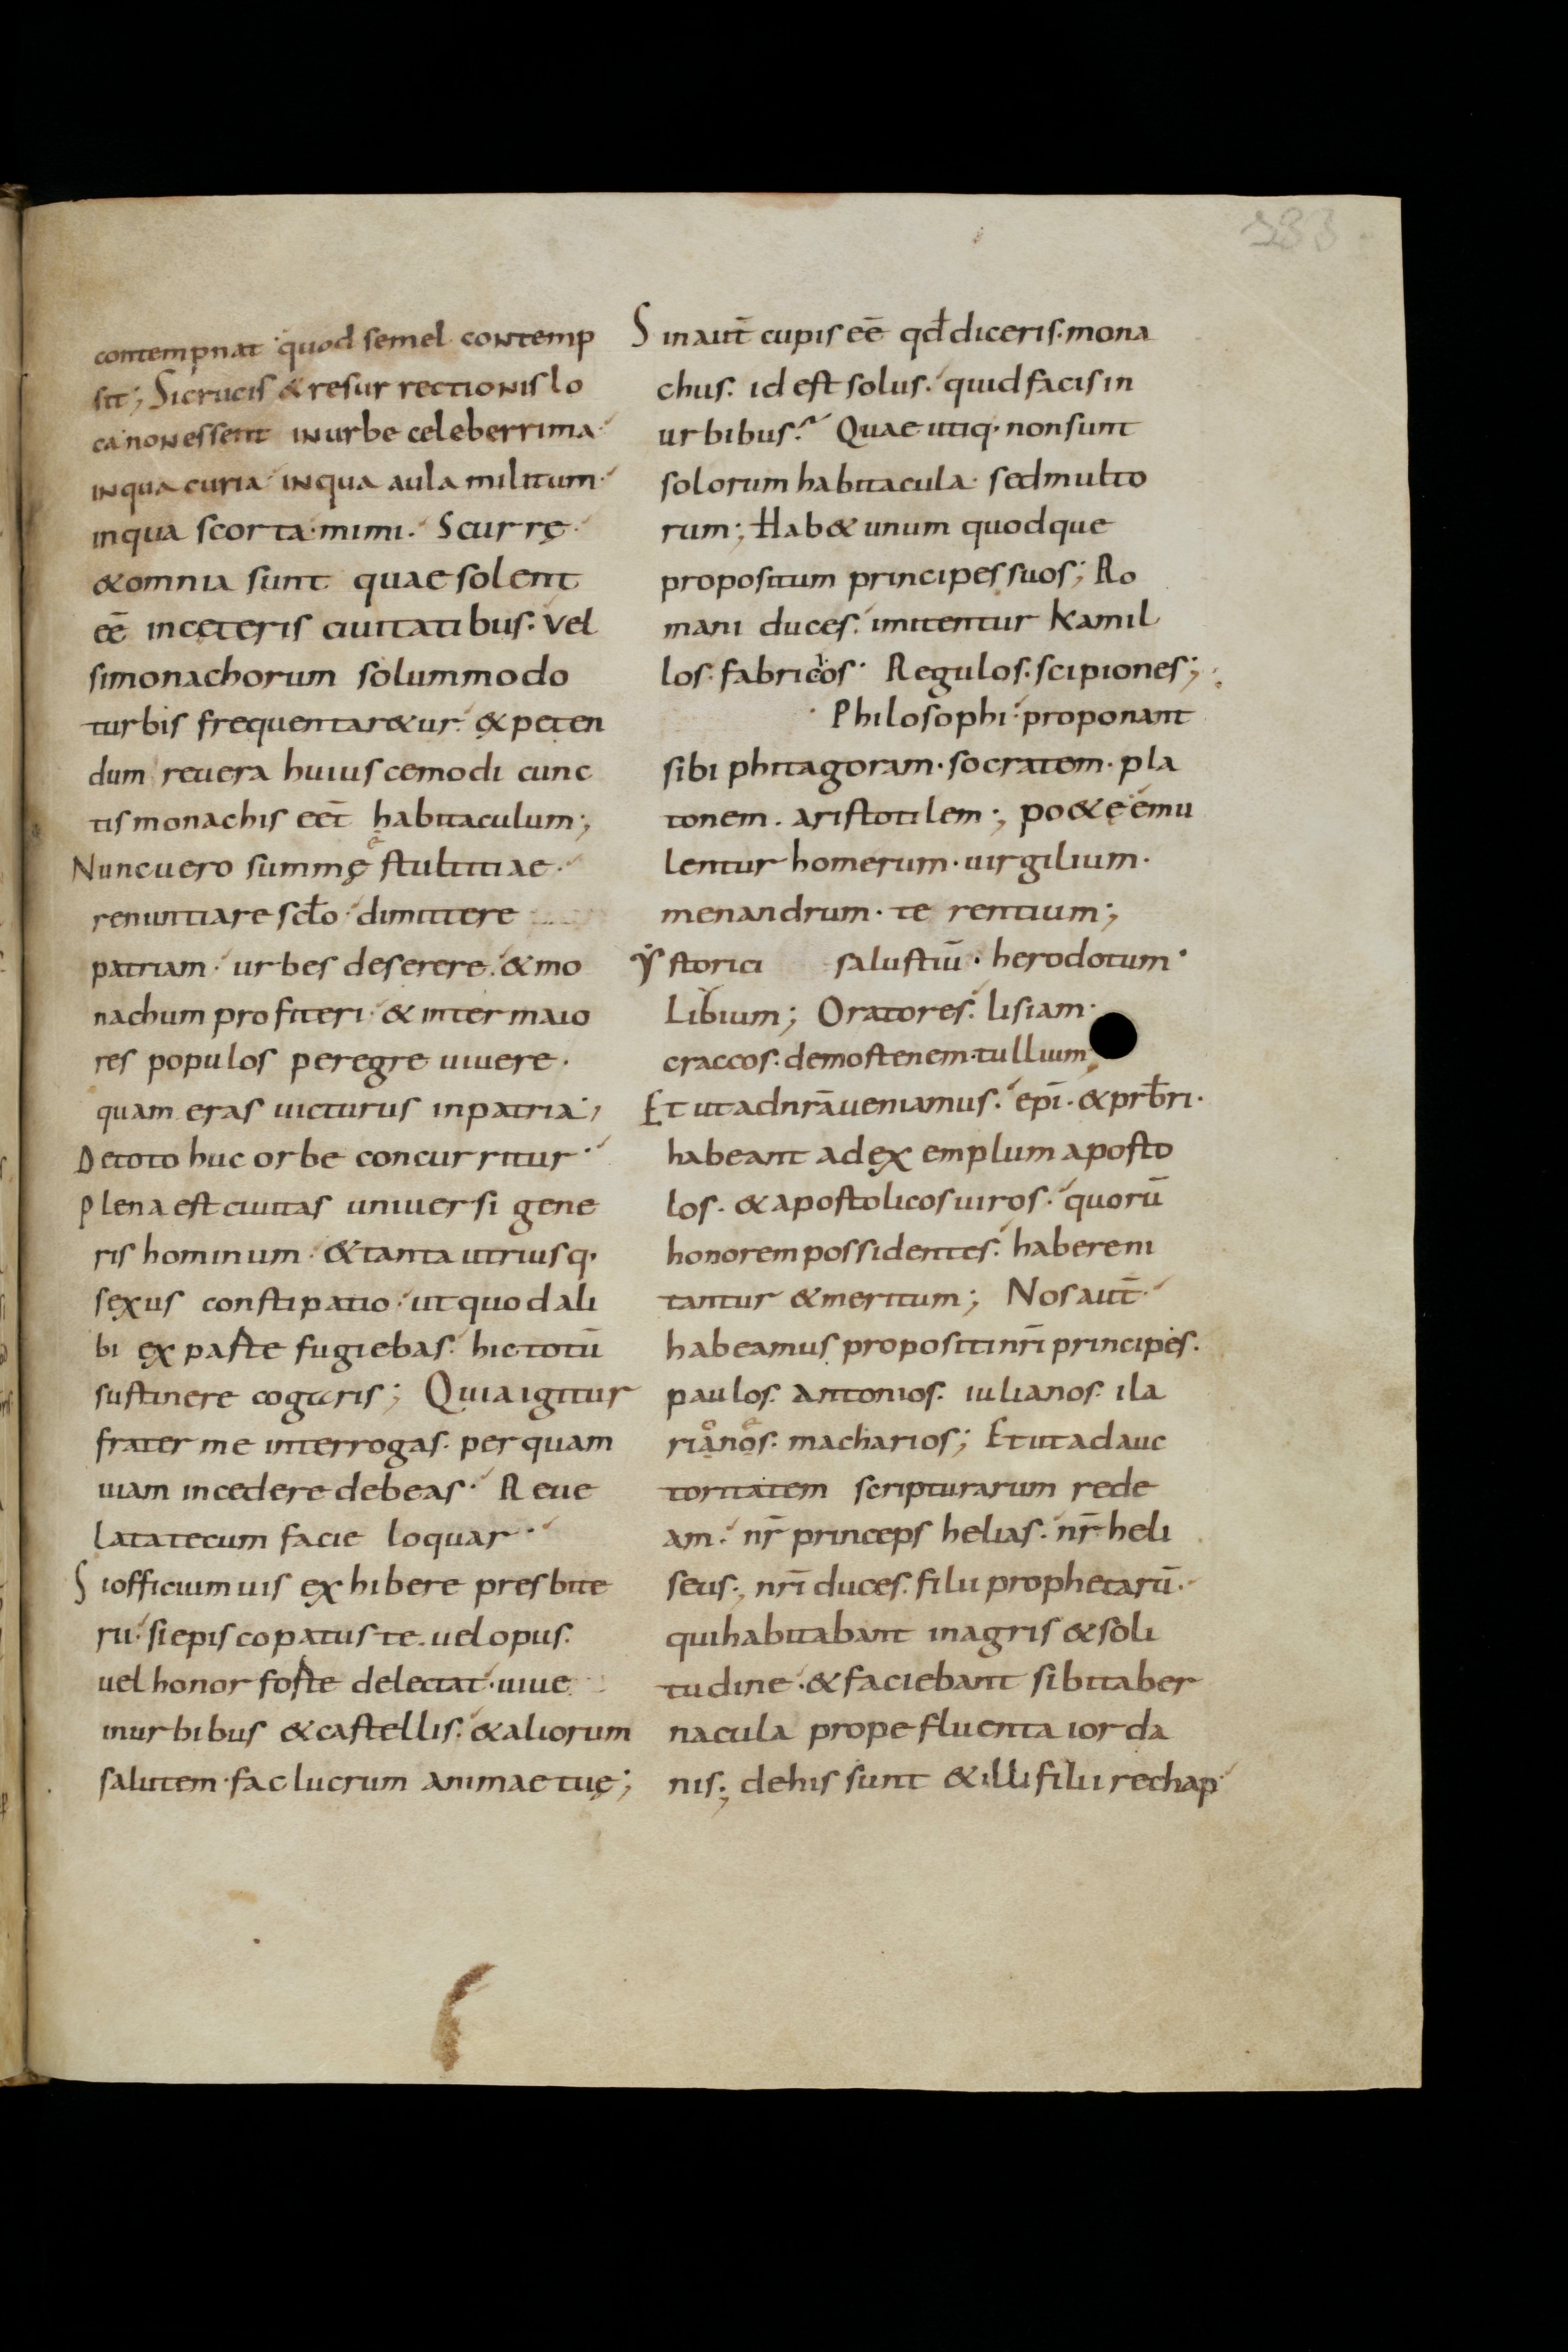 contempnat quod semel contemp
sit; Si crucis & resurrectionis lo
ca non essent in urbe celeberrima
in qua curia in qua aula militum
in qua scorta. mimi. Scurrę
& omnia sunt quae solent
eē in cęteris ciuitatibus. vel
si monachorum solummodo
turbis frequentar&ur. ęxpeten
dum reuera huiuscemodi cunc
tis monachis eēt habitaculum;
Nunc uero summę stultitiae.
renuntiare scło dimittere
patriam. urbes deserere. & mo
nachum profiteri. & inter maio
res populos peregre uiuere.
quam eras uicturus in patria;
De toto huc orbe concurritur.
Plena est ciuitas uniuersi gene
ris hominum. & tanta utriusq.
sexus constipatio. ut quod ali
bi ex paste fugiebas. hic totū
sustinere cogaris; Quia igitur
frater me interrogas. per quam
uiam incedere debeas. Reue
lata tecum facie loquar.
Si officium uis exhibere presbite
rii. si episcopatus te. uel opus.
uel honor foste delectat. uiue
in urbibus & castellis. & aliorum
salutem. fac lucrum animae tuę;
Sin aut̄ cupis eē qđ diceris. mona
chus. id est solus. quid facis in
urbibus? Quae utiq. non sunt
solorum habitacula. sed multo
rum; Hab& unum quodque
propositum principes suos; Ro
mani duces. imitentur kamil
los. fabricios. Regulos. scipiones;
Philosophi. proponant
sibi phitagoram. socratem. pla
tonem. aristotilem; po&ę emu
lentur homerum. uirgilium.
menandrum. terentium;
ystorici salustiū. herodotum.
Libium; Oratores. lisiam.
craccos. demostenem. tullium;
Et ut ad nrā ueniamus. epī. & prb̄ri.
habeant ad exemplum aposto
los. & apostolicos uiros. quorū
honorem possidentes. habere ni
tantur & meritum; Nos aut̄
habeamus propositi nrī principes.
paulos. antonios. iulianos. ila
rianos. macharios; Et ut ad auc
toritatem scripturarum rede
am. nr̄ princeps helias. nr̄ heli
seus; nrī duces. filii prophetarū.
qui habitabant in agris & soli
tudine. & faciebant sibi taber
nacula prope fluenta iorda
nis; de his sunt & illi filii rechap